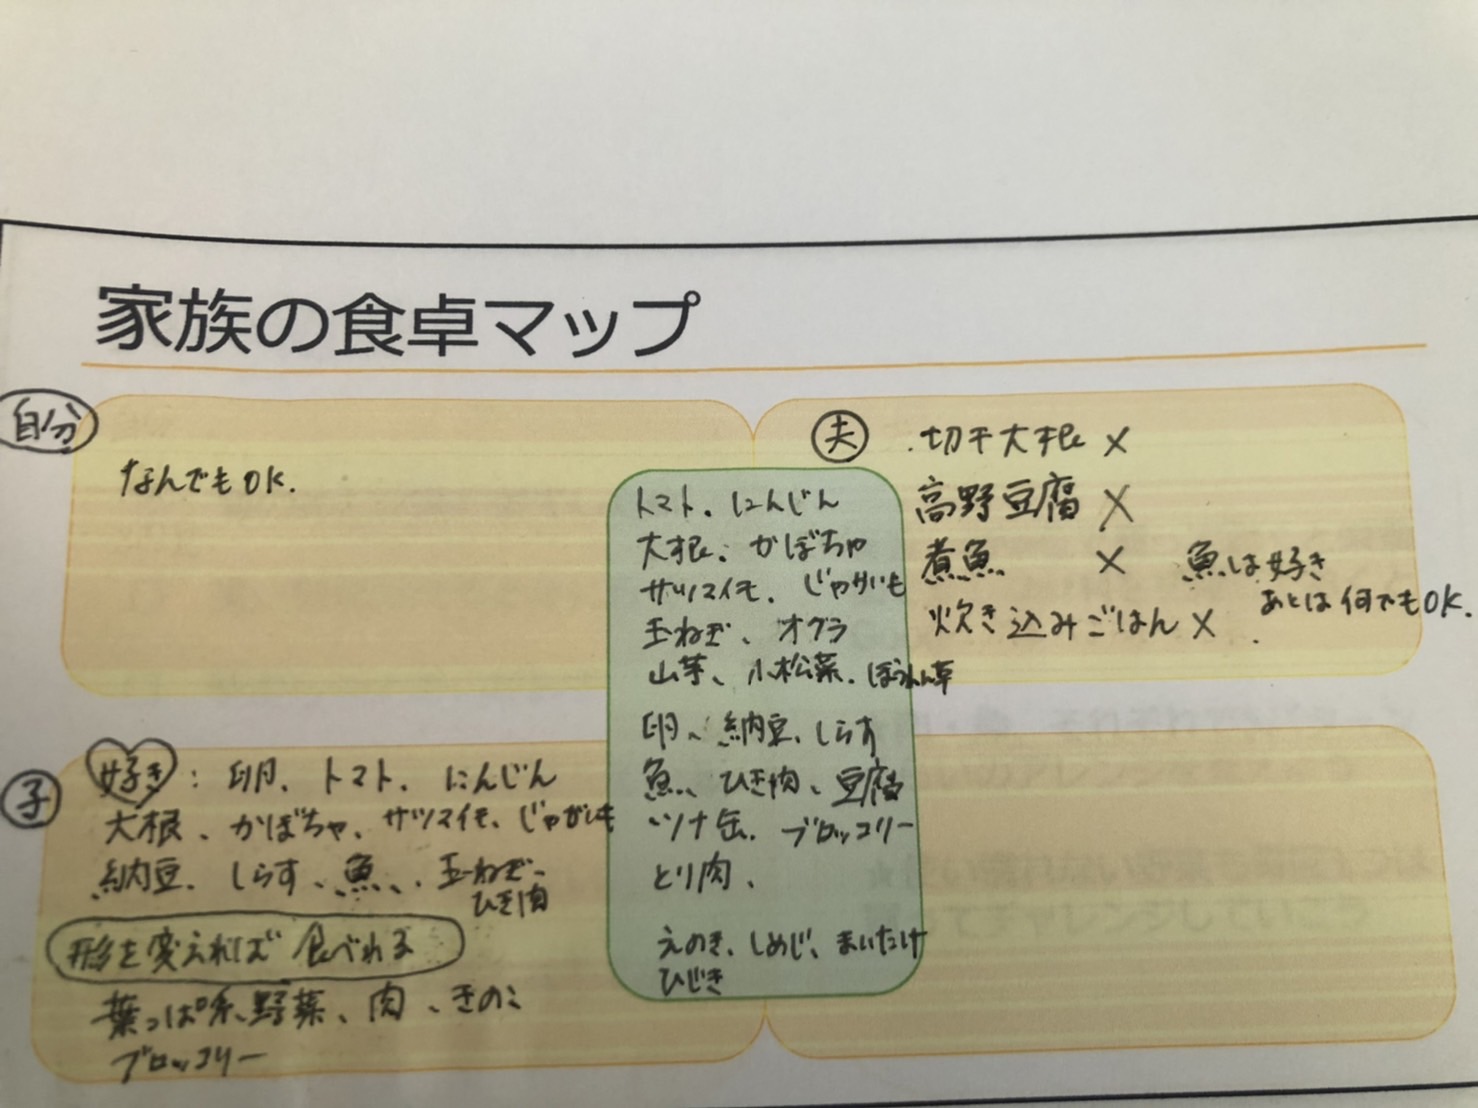 家族の食卓マップ
自分
なんでもOK.
夫
.切干大根 ×
高野豆腐 ×
煮魚 × 魚は好き
あとは何でもOK.
炊き込みごはん ×
トマト、にんじん
大根、かぼちゃ
サツマイモ、じゃがいも
玉ねぎ、オクラ
山芋、小松菜、ほうれん草
卵、納豆、しらす
魚、ひき肉、豆腐
ツナ缶、ブロッコリー
とり肉、
えのき、しめじ、まいたけ
ひじき
子
好き：卵、トマト、にんじん
大根、かぼちゃ、サツマイモ、じゃがいも
納豆、しらす、魚、玉ねぎ、
ひき肉
形を変えれば食べれる
葉っぱ系野菜、肉、きのこ
ブロッコリー